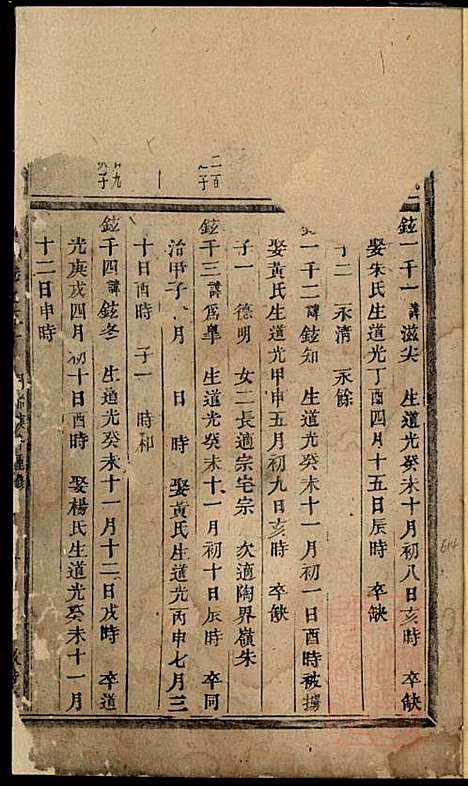 鉉一千一諱滋尖 生道光癸未十月初八日亥時 卒缺
娶朱氏生道光丁酉四月十五日辰時 卒缺
子二 永清 永餘
一千二諱鉉知 生道光癸未十一月初一日酉時被擄
娶黃氏生道光甲申五月初九日亥時 卒缺
子一 德明 女二長適宗宅宗 次適陶界嶺朱
鉉千三諱為舉 生道光癸未十一月初十日辰時 卒同
治甲子 月 日 時 娶黃氏生道光丙申七月三
十日酉時 子一 時和
鉉千四諱鉉冬 生道光癸未十一月十二日戌時 卒道
光庚戌四月初十日酉時 娶楊氏生道光癸未十一月
十二日申時
二百
子
九
子
614